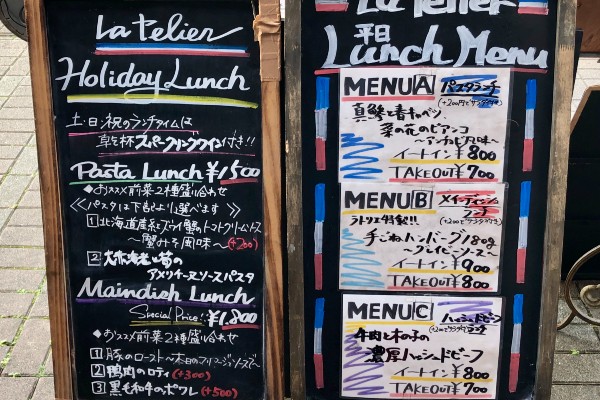 La telier
Holiday Lunch
土・日・祝のランチタイムは
乾杯スパークリングワイン付き!!
Pasta Lunch ¥1500
◆おススメ前菜2種盛り合わせ
《パスタは下記より選べます》
1 北海道産紅ズワイ蟹のトマトクリームソース
～蟹みそ風味～ (+200)
2
アメリケーヌソースパスタ
Maindish Lunch
Special Price!! ¥1,800
◆おススメ前菜2種盛り合わせ
1 豚のロースト
2 鴨肉のロティ (+300)
3 黒毛和牛のポワレ (+500)
La Telier
平日
Lunch Menu
MENU A パスタランチ
(+200円でサラダ付き)
真鯵と春キャベツ
菜の花のビアンコ
～アンチョビ風味～
イートイン ¥800
TAKEOUT ¥700
MENU B メインディッシュ
ランチ
ラトリエ特製!!
手ごねハンバーグ180g
イートイン ¥900
TAKEOUT ¥800
MENU C ハッシュドビーフ
ランチ
牛肉と木の子の
濃厚ハッシュドビーフ
イートイン ¥800
TAKEOUT ¥700